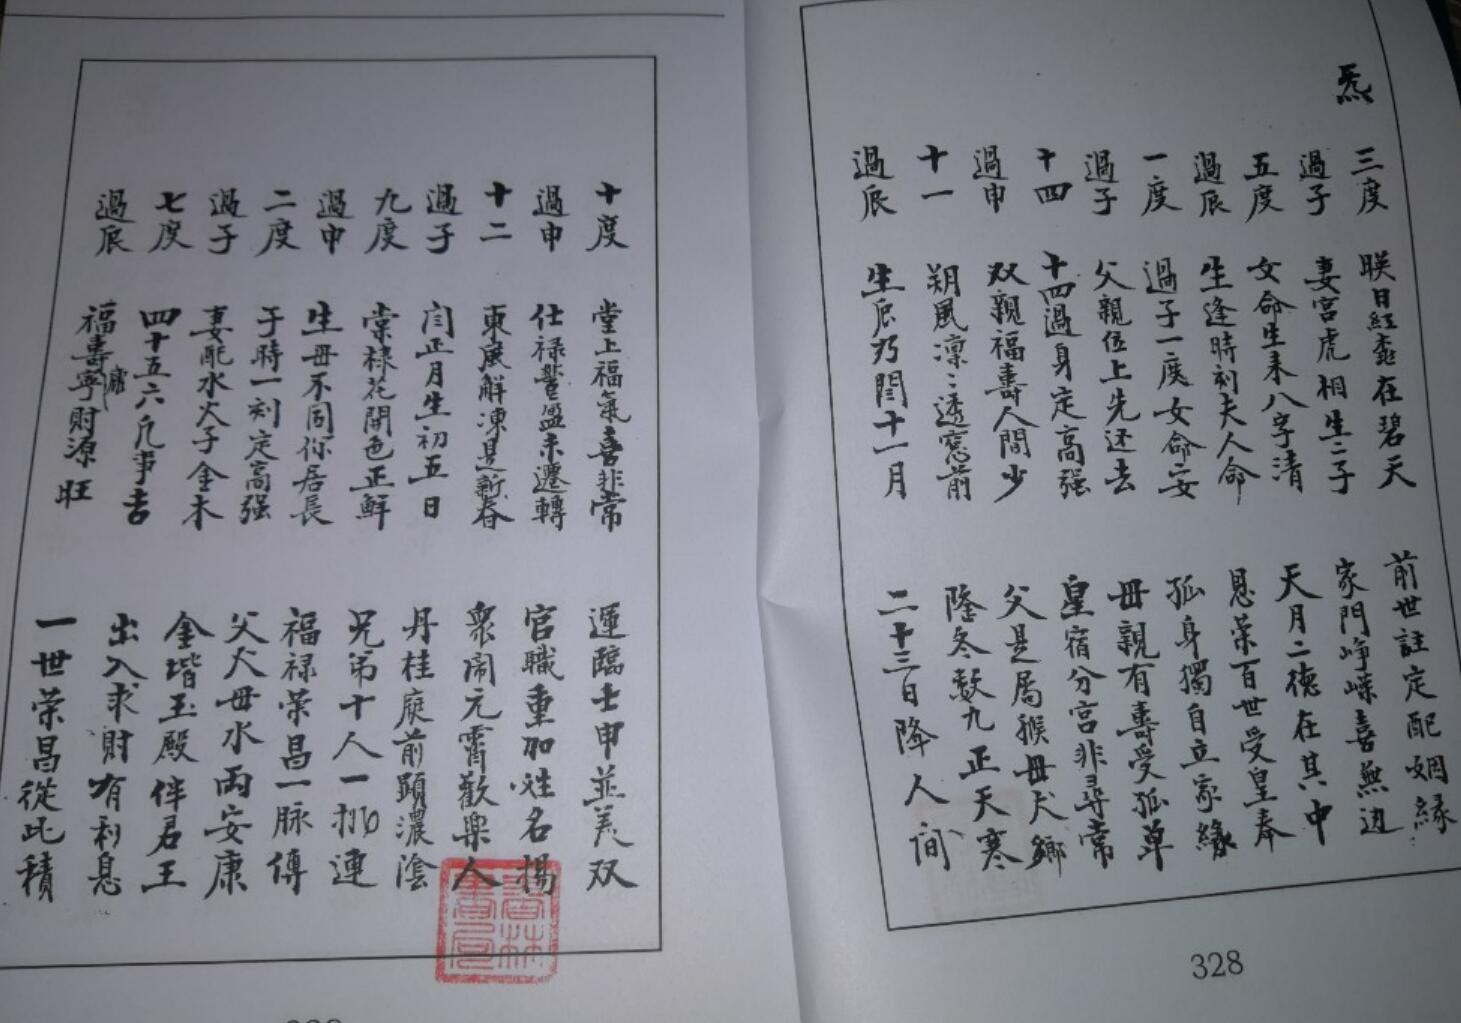 炁
三度 朕日紅森在碧天 前世註定配姻緣
過子 妻宮虎相生二子 家門崢嶸喜無边
五度 女命生来八字清 天月二德在其中
過辰 生逢時刻夫人命 恩荣百世受皇奉
一度 過子一度女命安 孤身獨自立家緣
過子 父親位上先还去 毋親有壽受孤单
十四 十四過身定高強 皇宿分宫非尋常
過申 双親福壽人間少 父是属猴毋犬鄉
十一 朔風凛々透窓前 隆冬數九正天寒
過辰 生辰乃閏十一月 二十三日降人间
328
十度 堂上福氣喜非常 運臨壬申並美双
過申 仕禄豐盈未遷轉 官職重加姓名揚
十二 東風解凍是新春 衆鬧元霄歡樂人
過子 闰正月生初五日 丹桂庭前顕濃陰
九度 棠棣花開色正鮮 兄弟十人一挪連
過申 生毋不同你居長 福禄荣昌一脉傳
二度 子時一刻定高強 父犬毋水兩安康
過子 妻配水火子金木 金堦玉殿伴君王
七度 四十五六凢事吉 出入求財有利息
過辰 福壽寧康財源旺 一世荣昌從此積